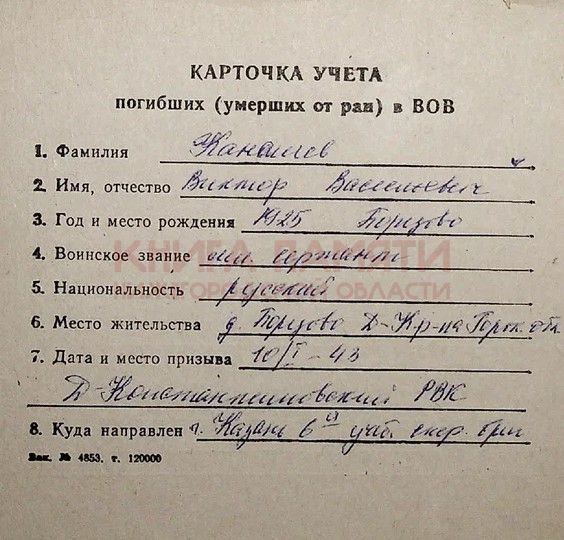 КАРТОЧКА УЧЕТА
погибших (умерших от ран) в ВОВ
1. Фамилия Канашев
2. Имя, отчество Виктор Васильевич
3. Год и место рождения 1925 Борцово
КНИГА ПАМЯТИ
4. Воинское звание мл. сержант
НИЖЕГОРОДСКОЙ ОБЛАСТИ
5. Национальность русский
6. Место жительства д. Борцово Д-К р-на Горьк. обл.
7. Дата и место призыва 10/I-43
Д-Константиновский РВК
8. Куда направлен г. Казань 6я учеб. бриг
Зак. № 4853, т. 120000